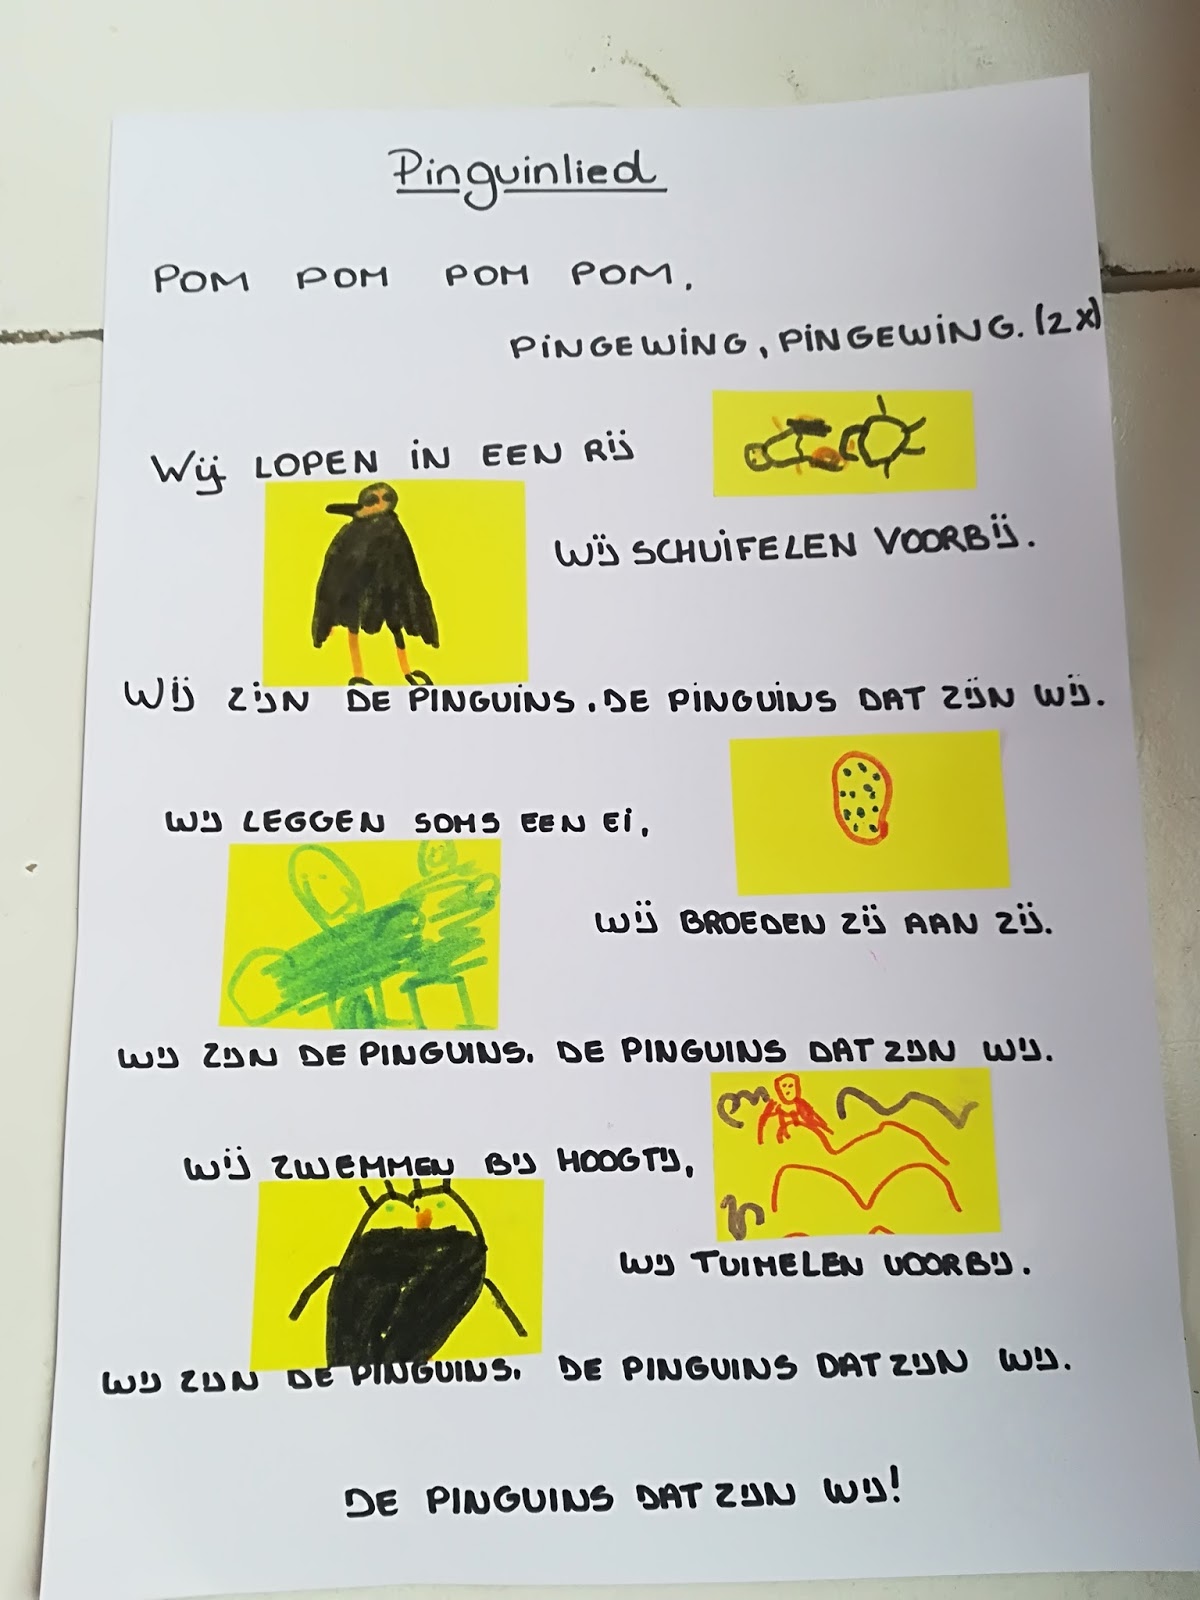 Pinguinlied
POM POM POM POM.
PINGEWING, PINGEWING. (2X)
Wij LOPEN IN EEN RIJ
WIJ SCHUIFELEN VOORBIJ.
WIJ ZIJN DE PINGUINS. DE PINGUINS DAT ZIJN WIJ.
WIJ LEGGEN SOMS EEN EI,
WIJ BROEDEN ZIJ AAN ZIJ.
WIJ ZIJN DE PINGUINS. DE PINGUINS DAT ZIJN WIJ.
WIJ ZWEMMEN BIJ HOOGTIJ,
WIJ TUIMELEN VOORBIJ.
WIJ ZIJN DE PINGUINS. DE PINGUINS DAT ZIJN WIJ.
DE PINGUINS DAT ZIJN WIJ!